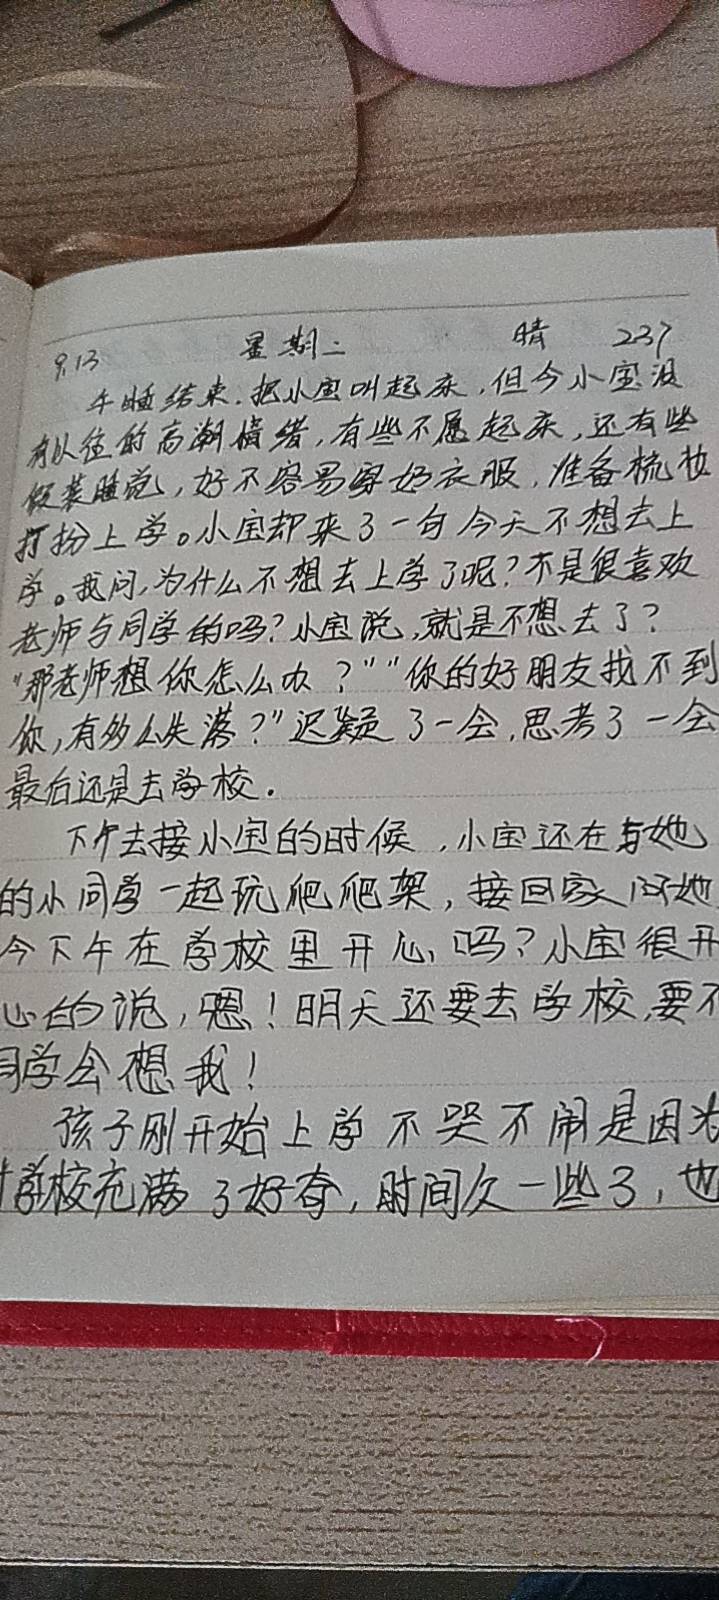 9.13 星期二 晴 237
午睡结束.把小宝叫起床,但今小宝没
有以往的高潮情绪,有些不愿起床,还有些
假装睡觉,好不容易穿好衣服,准备梳妆
打扮上学。小宝却来了一句今天不想去上
学。我问,为什么不想去上学了呢?不是很喜欢
老师与同学的吗?小宝说,就是不想去了?
"那老师想你怎么办?""你的好朋友找不到
你,有多么失落?"迟疑了一会,思考了一会
最后还是去学校.
下午去接小宝的时候,小宝还在与她
的小同学一起玩爬爬架,接回家问她
今下午在学校里开心吗?小宝很开
心的说,嗯!明天还要去学校,要不
同学会想我!
孩子刚开始上学不哭不闹是因为
学校充满了好奇,时间久一些了,也